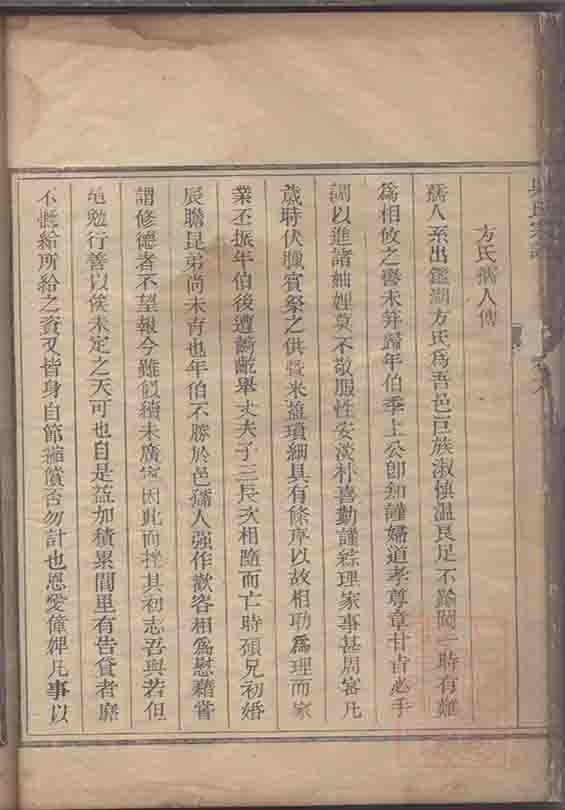 方氏孺人傳
孺人系出鑑湖方氏為吾邑巨族淑慎溫良足不踰閫一時有難
為相攸之譽未笄歸年伯季上公即知謹婦道孝尊章甘旨必手
調以進諸妯娌莫不敬服性安淡朴喜勤謹綜理家事甚周密凡
歲時伏臘賓祭之供暨米鹽瑣細具有條序以故相助為理而家
業丕振年伯後遭齮齕舉丈夫子三長次相隨而亡時碩兄初婚
辰瞻昆弟尚未育也年伯不勝於邑孺人强作歡容相為慰藉嘗
謂修德者不望報今雖餒續未廣寧因此而挫其初志吾與若但
黽勉行善以俟未定之天可也自是益加積累閭里有告貸者靡
不慨給所給之資又皆身自節縮償否勿計也恩愛僮婢凡事以